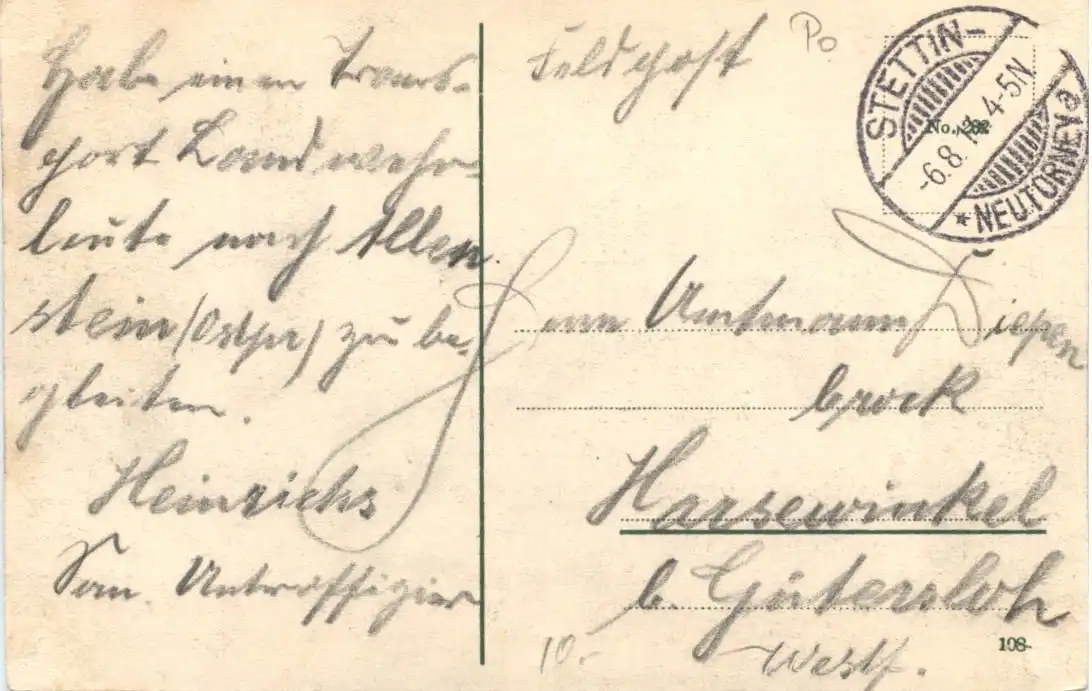 Habe einen Trans-
port Landwehr-
leute nach Allen
stein (Ostpr) zu be-
gleiten.
Heinrichs
San. Unteroffizier
Feldpost
Po
STETTIN-
No. 202
-6.8.14. 4-5N
* NEUTORNEY e
Herrn Amtmann Diepen
brock
Harsewinkel
b. Gütersloh
Westf.
10.-
108-